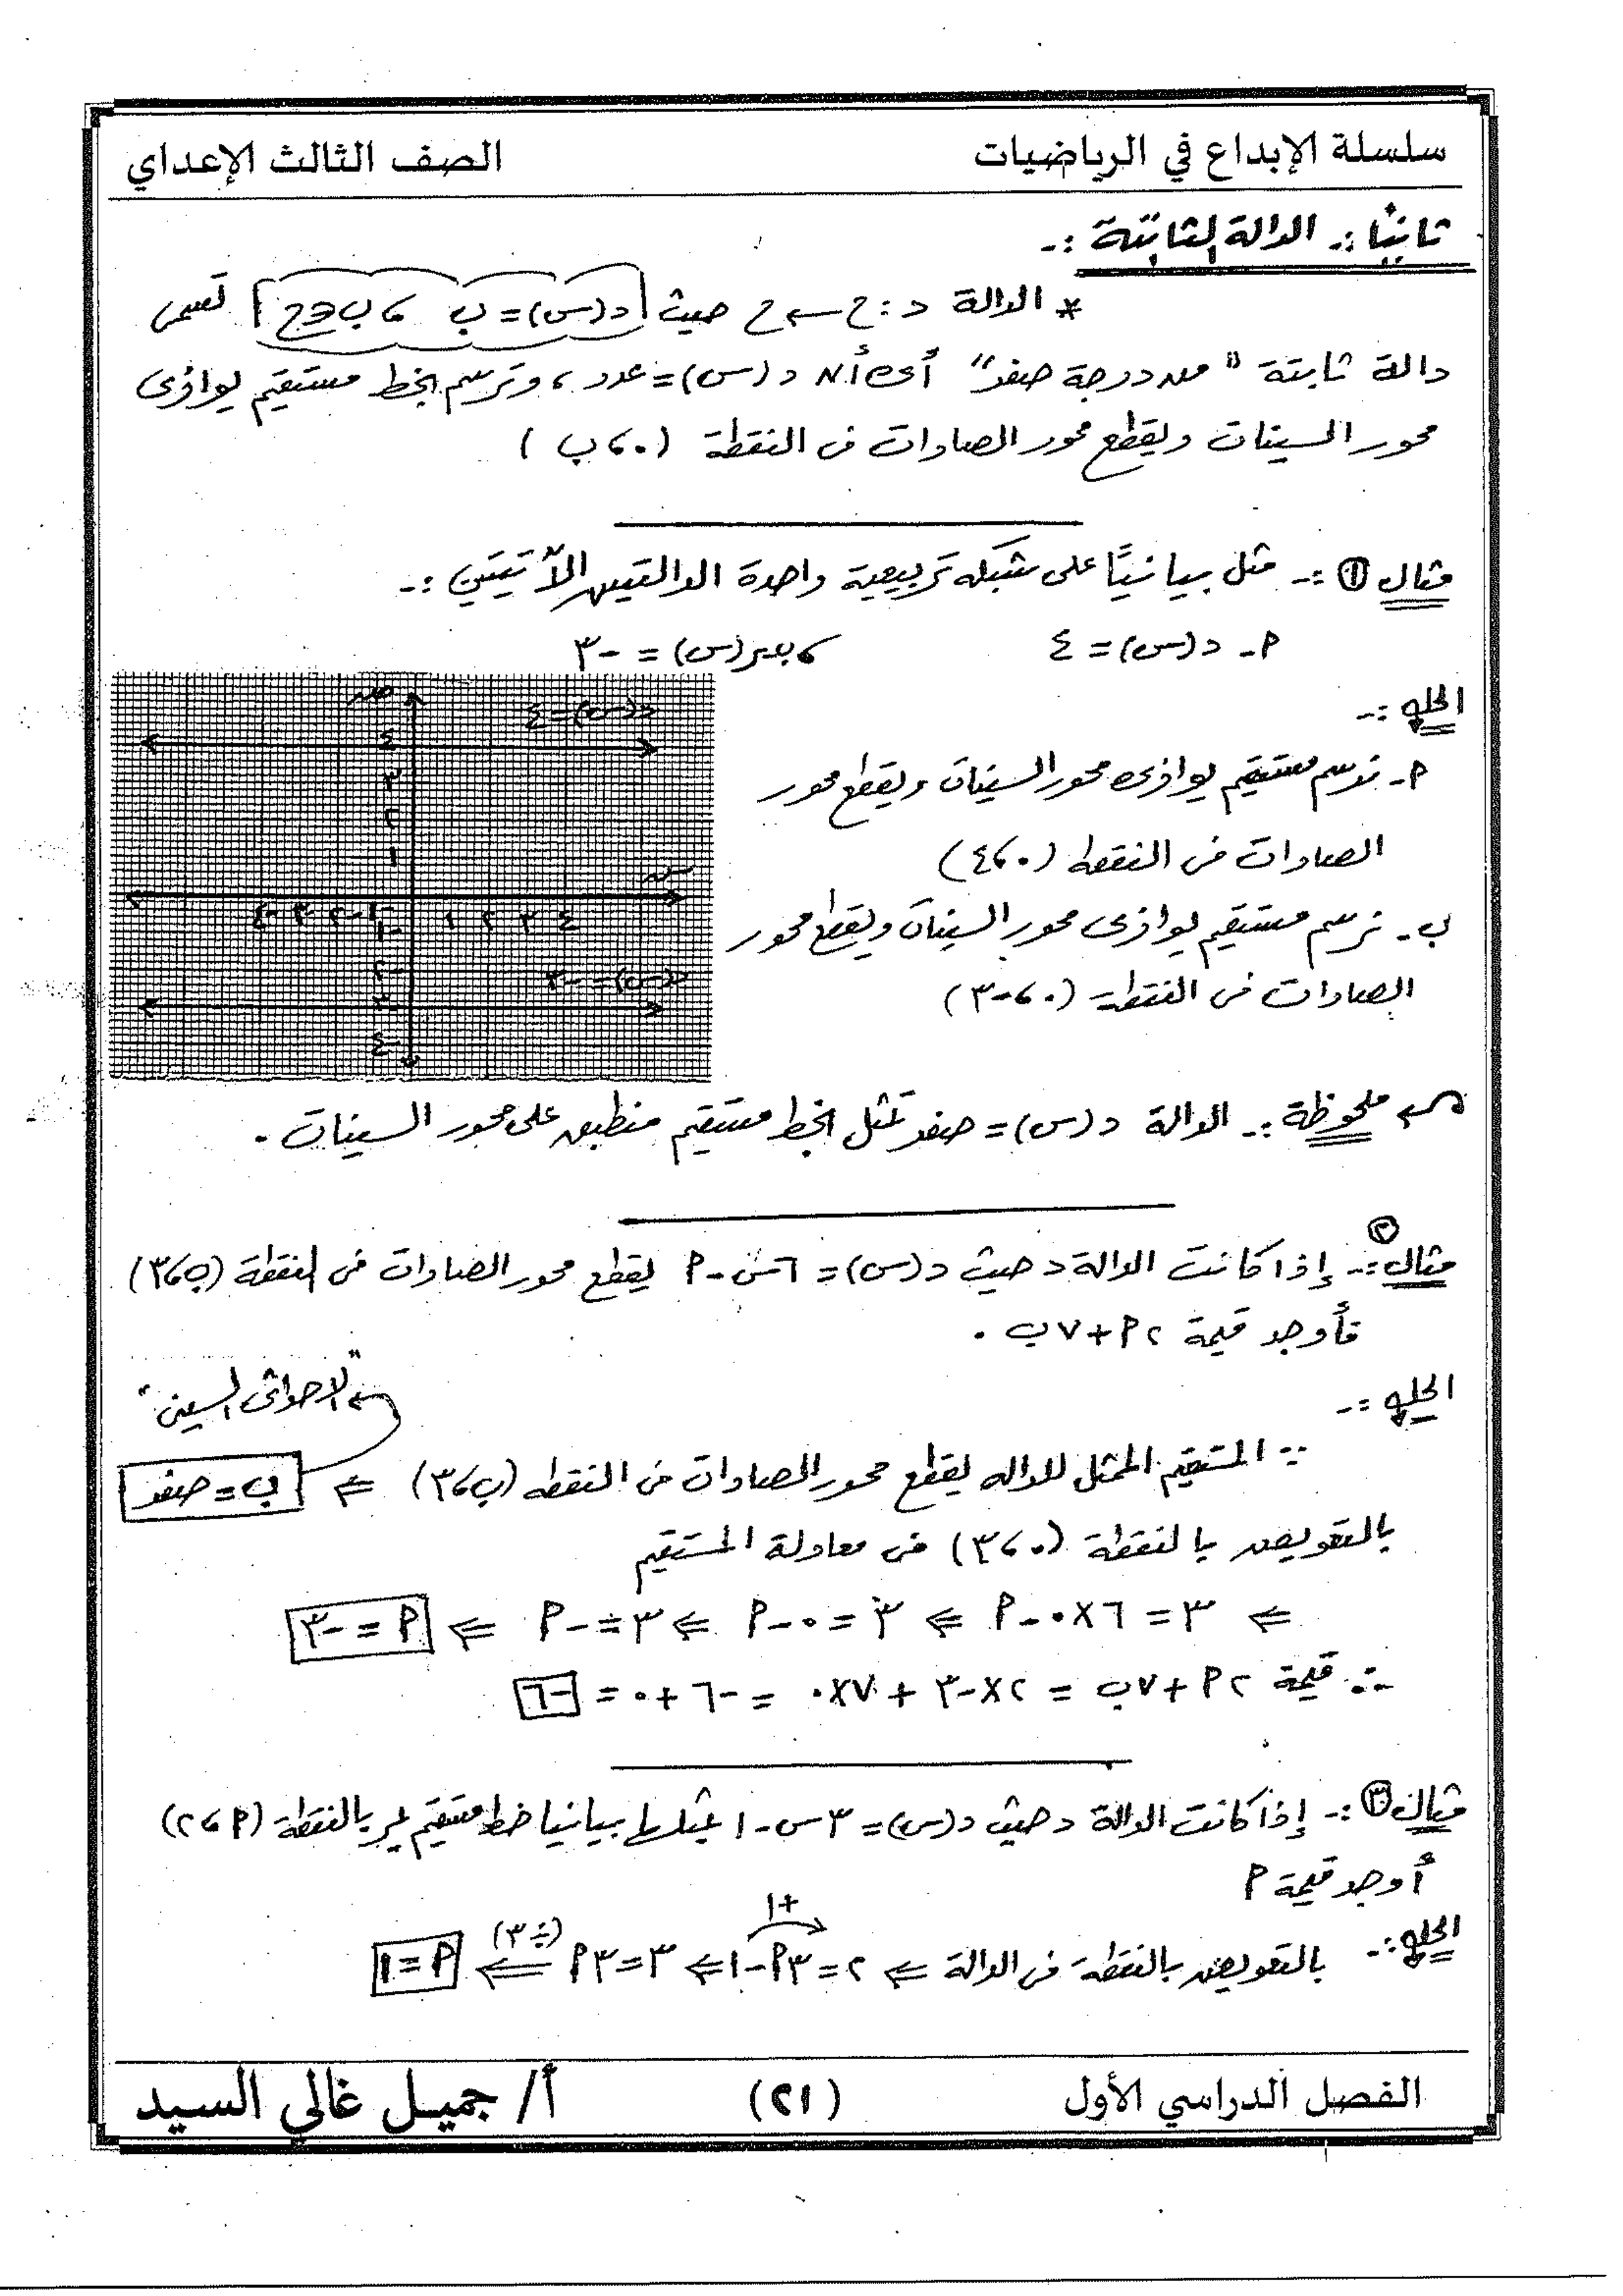 سلسلة الإبداع في الرياضيات
الصف الثالث الإعداي
ثانيًا :- الدالة الثابتة :-
* الدالة د : ح ← ح حيث د(س) = ب ، ب ∈ ح تسمى
دالة ثابتة "من درجة صفر" أى أن د(س) = عدد ، وترسم بخط مستقيم يوازى
محور السينات ويقطع محور الصادات فى النقطة (٠ ، ب)
مثال ١ :- مثل بيانيًا على شبكة تربيعية واحدة الدالتين الآتيتين :-
٩- د(س) = ٤ ، ب- ر(س) = -٣
الحل :-
٩- نرسم مستقيم يوازى محور السينات ويقطع محور
الصادات فى النقطة (٠ ، ٤)
ب- نرسم مستقيم يوازى محور السينات ويقطع محور
الصادات فى النقطة (٠ ، -٣)
ص
د(س) = ٤
٤
٣
٢
١
س
-٤ -٣ -٢ -١ ١ ٢ ٣ ٤
-١
-٢
د(س) = -٣
-٣
-٤
ملحوظة :- الدالة د(س) = صفر تمثل بخط مستقيم منطبق على محور السينات .
مثال ٢ :- إذا كانت الدالة د حيث د(س) = ٦س - ٩ يقطع محور الصادات فى النقطة (ب ، ٣)
فأوجد قيمة ٢٩ + ٧ب .
الحل :-
"الاحداثى السينى"
∵ المستقيم الممثل للداله يقطع محور الصادات فى النقطه (ب ، ٣) ⇐ ب = صفر
بالتعويض بالنقطة (٠ ، ٣) فى معادلة المستقيم
⇐ ٣ = ٦ × ٠ - ٩ ⇐ ٣ = ٠ - ٩ ⇐ ٣ = -٩ ⇐ ٩ = -٣
∴ قيمة ٢٩ + ٧ب = ٢ × -٣ + ٧ × ٠ = -٦ + ٠ = -٦
مثال ٣ :- إذا كانت الدالة د حيث د(س) = ٣س - ١ يمثلها بيانيا خط مستقيم يمر بالنقطة (٩ ، ٢)
أوجد قيمة ٩
+١
الحل :- بالتعويض بالنقطة فى الدالة ⇐ ٢ = ٣٩ - ١ ⇐ ٣ = ٣٩ ⇐ (÷٣) ٩ = ١
الفصل الدراسي الأول
(٢١)
أ/ جميل غالي السيد